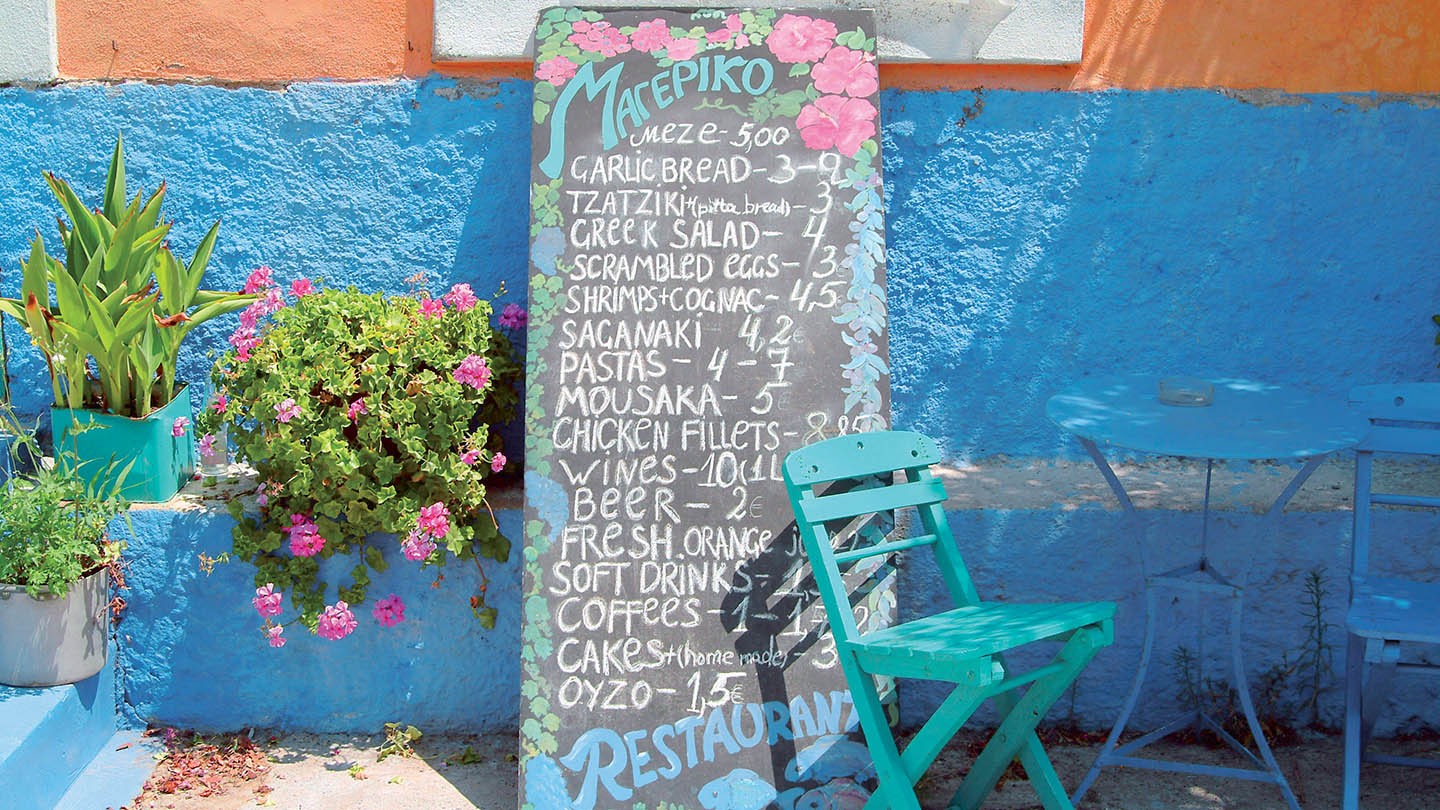 Μαγερικο
MEZE-5,00
GARLIC BREAD-3-
TZATZIKI+(pitta bread)-3
GREEK SALAD-4
SCRAMBLED EGGS-3
SHRIMPS+COGNAC-4,5
SAGANAKI 4,2€
PASTAS-4-7
MOUSAKA-5
CHICKEN FILLETS-
WINES-10(1L
BEER-2€
FRESH.ORANGE
SOFT DRINKS-
COFFEES-1-
CAKES+(home made)-3
OYZO-1,5€
RESTAURANT